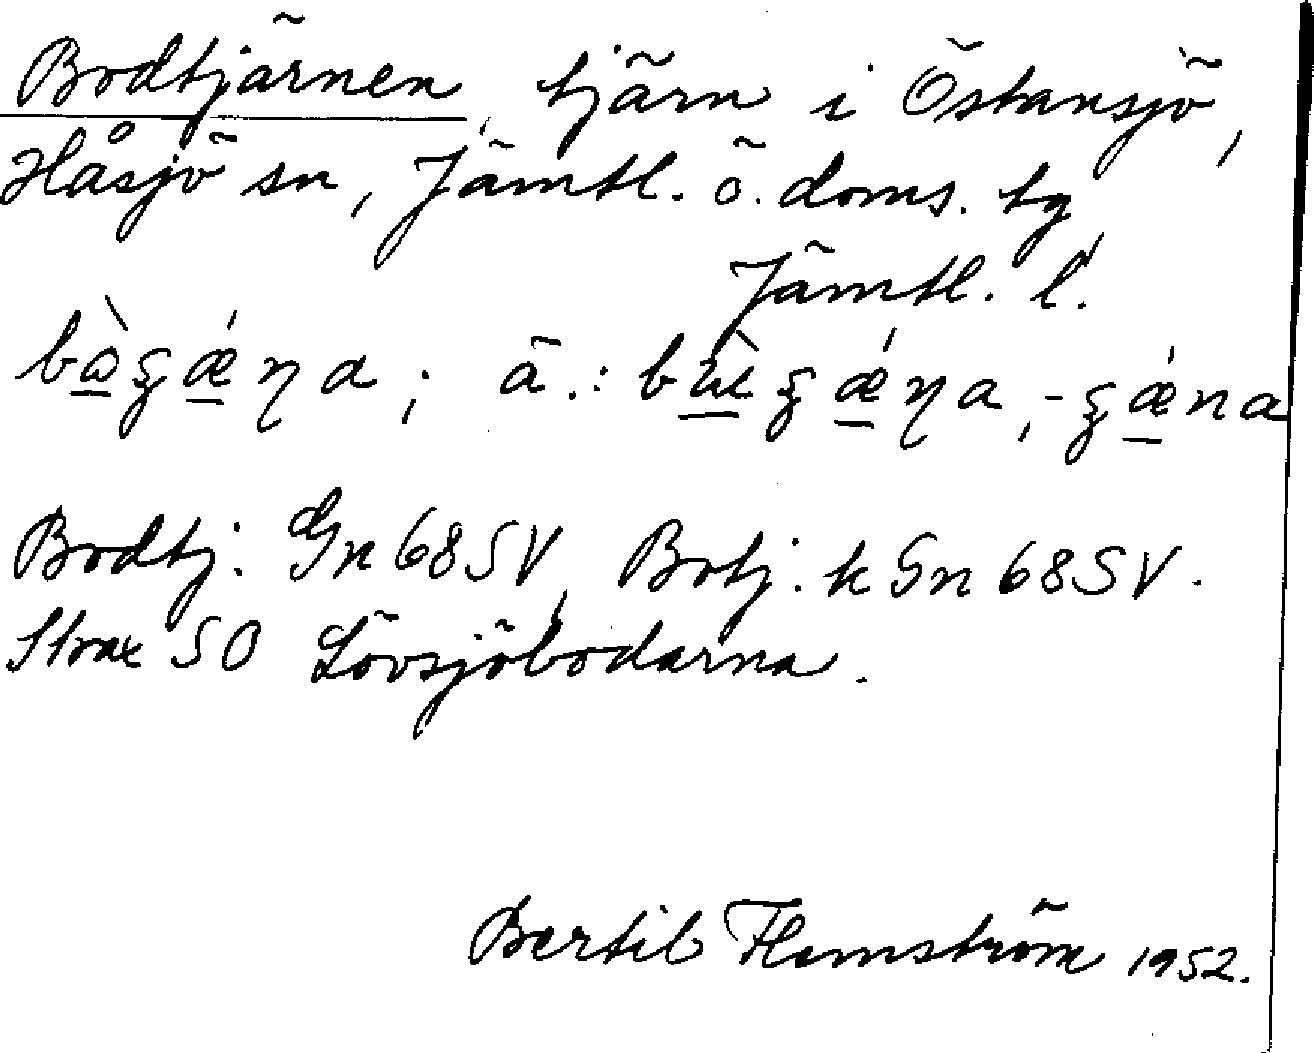 Bodtjärnen, tjärn i Östansjö,
Håsjö sn, Jämtl. ö. doms. tg
Jämtl. l.
Bodtj. Gn 68 SV, Botj. k Gn 68 SV.
Strax SO Lövsjöbodarna.
Bertil Flemström 1952.